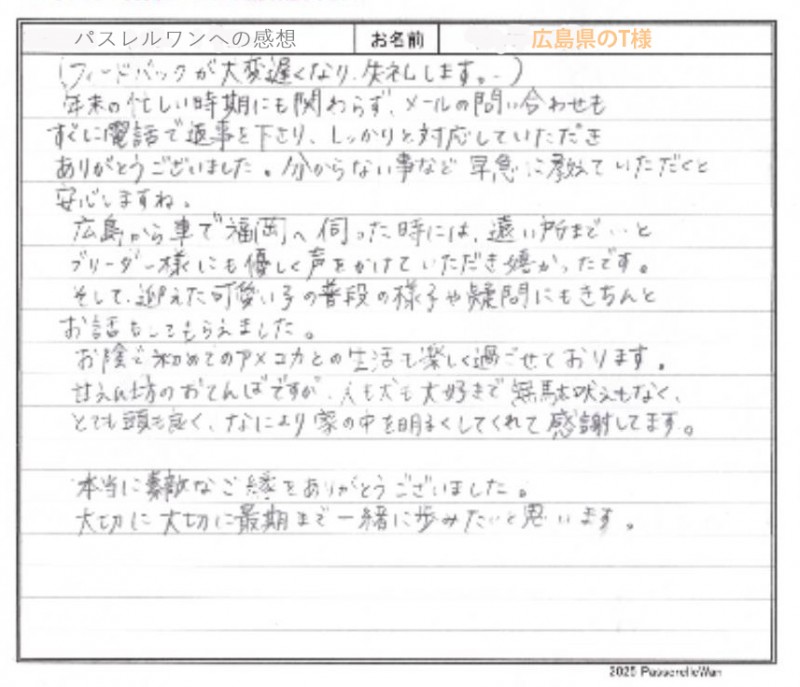 パスレルワンへの感想 お名前 広島県のT様
(フィードバックが大変遅くなり、失礼します。)
年末の忙しい時期にも関わらず、メールの問い合わせも
すぐに電話で返事を下さり、しっかりと対応していただき
ありがとうございました。分からない事など早急に教えていただくと
安心しますね。
広島から車で福岡へ伺った時には、遠い所までいと
ブリーダー様にも優しく声をかけていただき嬉かったです。
そして、迎えた可愛い子の普段の様子や疑問にもきちんと
お話をしてもらえました。
お陰で初めてのアメコカとの生活も楽しく過ごせております。
甘えん坊のおてんばですが、人も犬も大好きで無駄吠えもなく、
とても頭も良く、なにより家の中を明るくしてくれて感謝してます。
本当に素敵なご縁をありがとうございました。
大切に大切に最期まで一緒に歩みたいと思います。
2025 PasserelleWan